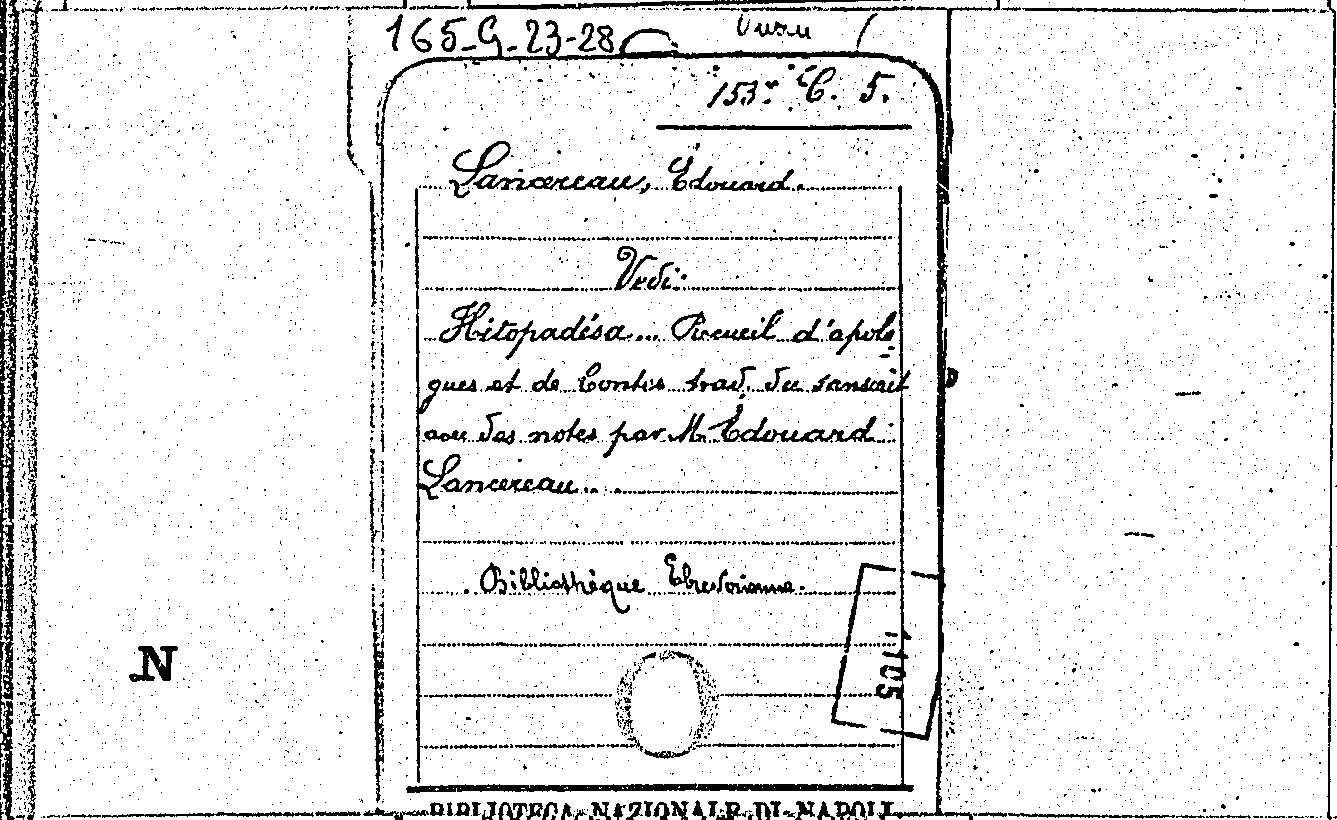 165-G-23-28
153* C. 5.
Lancereau, Édouard.
Vedi:
Hitopadésa... Recueil d'apolo
gues et de Contes trad. du sanscrit
avec des notes par M. Édouard
Lancereau...
Bibliothèque Elzevirienne.
1105
N
BIBLIOTECA NAZIONALE DI NAPOLI